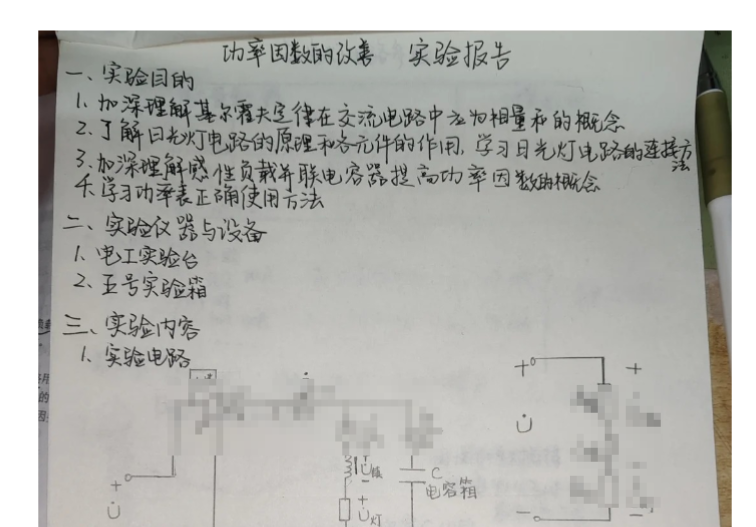 功率因数的改善 实验报告
一、实验目的
1. 加深理解基尔霍夫定律在交流电路中应为相量和的概念
2. 了解日光灯电路的原理和各元件的作用，学习日光灯电路的连接方法
3. 加深理解感性负载并联电容器提高功率因数的概念
4. 学习功率表正确使用方法
二、实验仪器与设备
1. 电工实验台
2. 五号实验箱
三、实验内容
1. 实验电路
+ +
U̇
U̇镇 C
电容箱
+ − +
U̇ U̇灯 − −